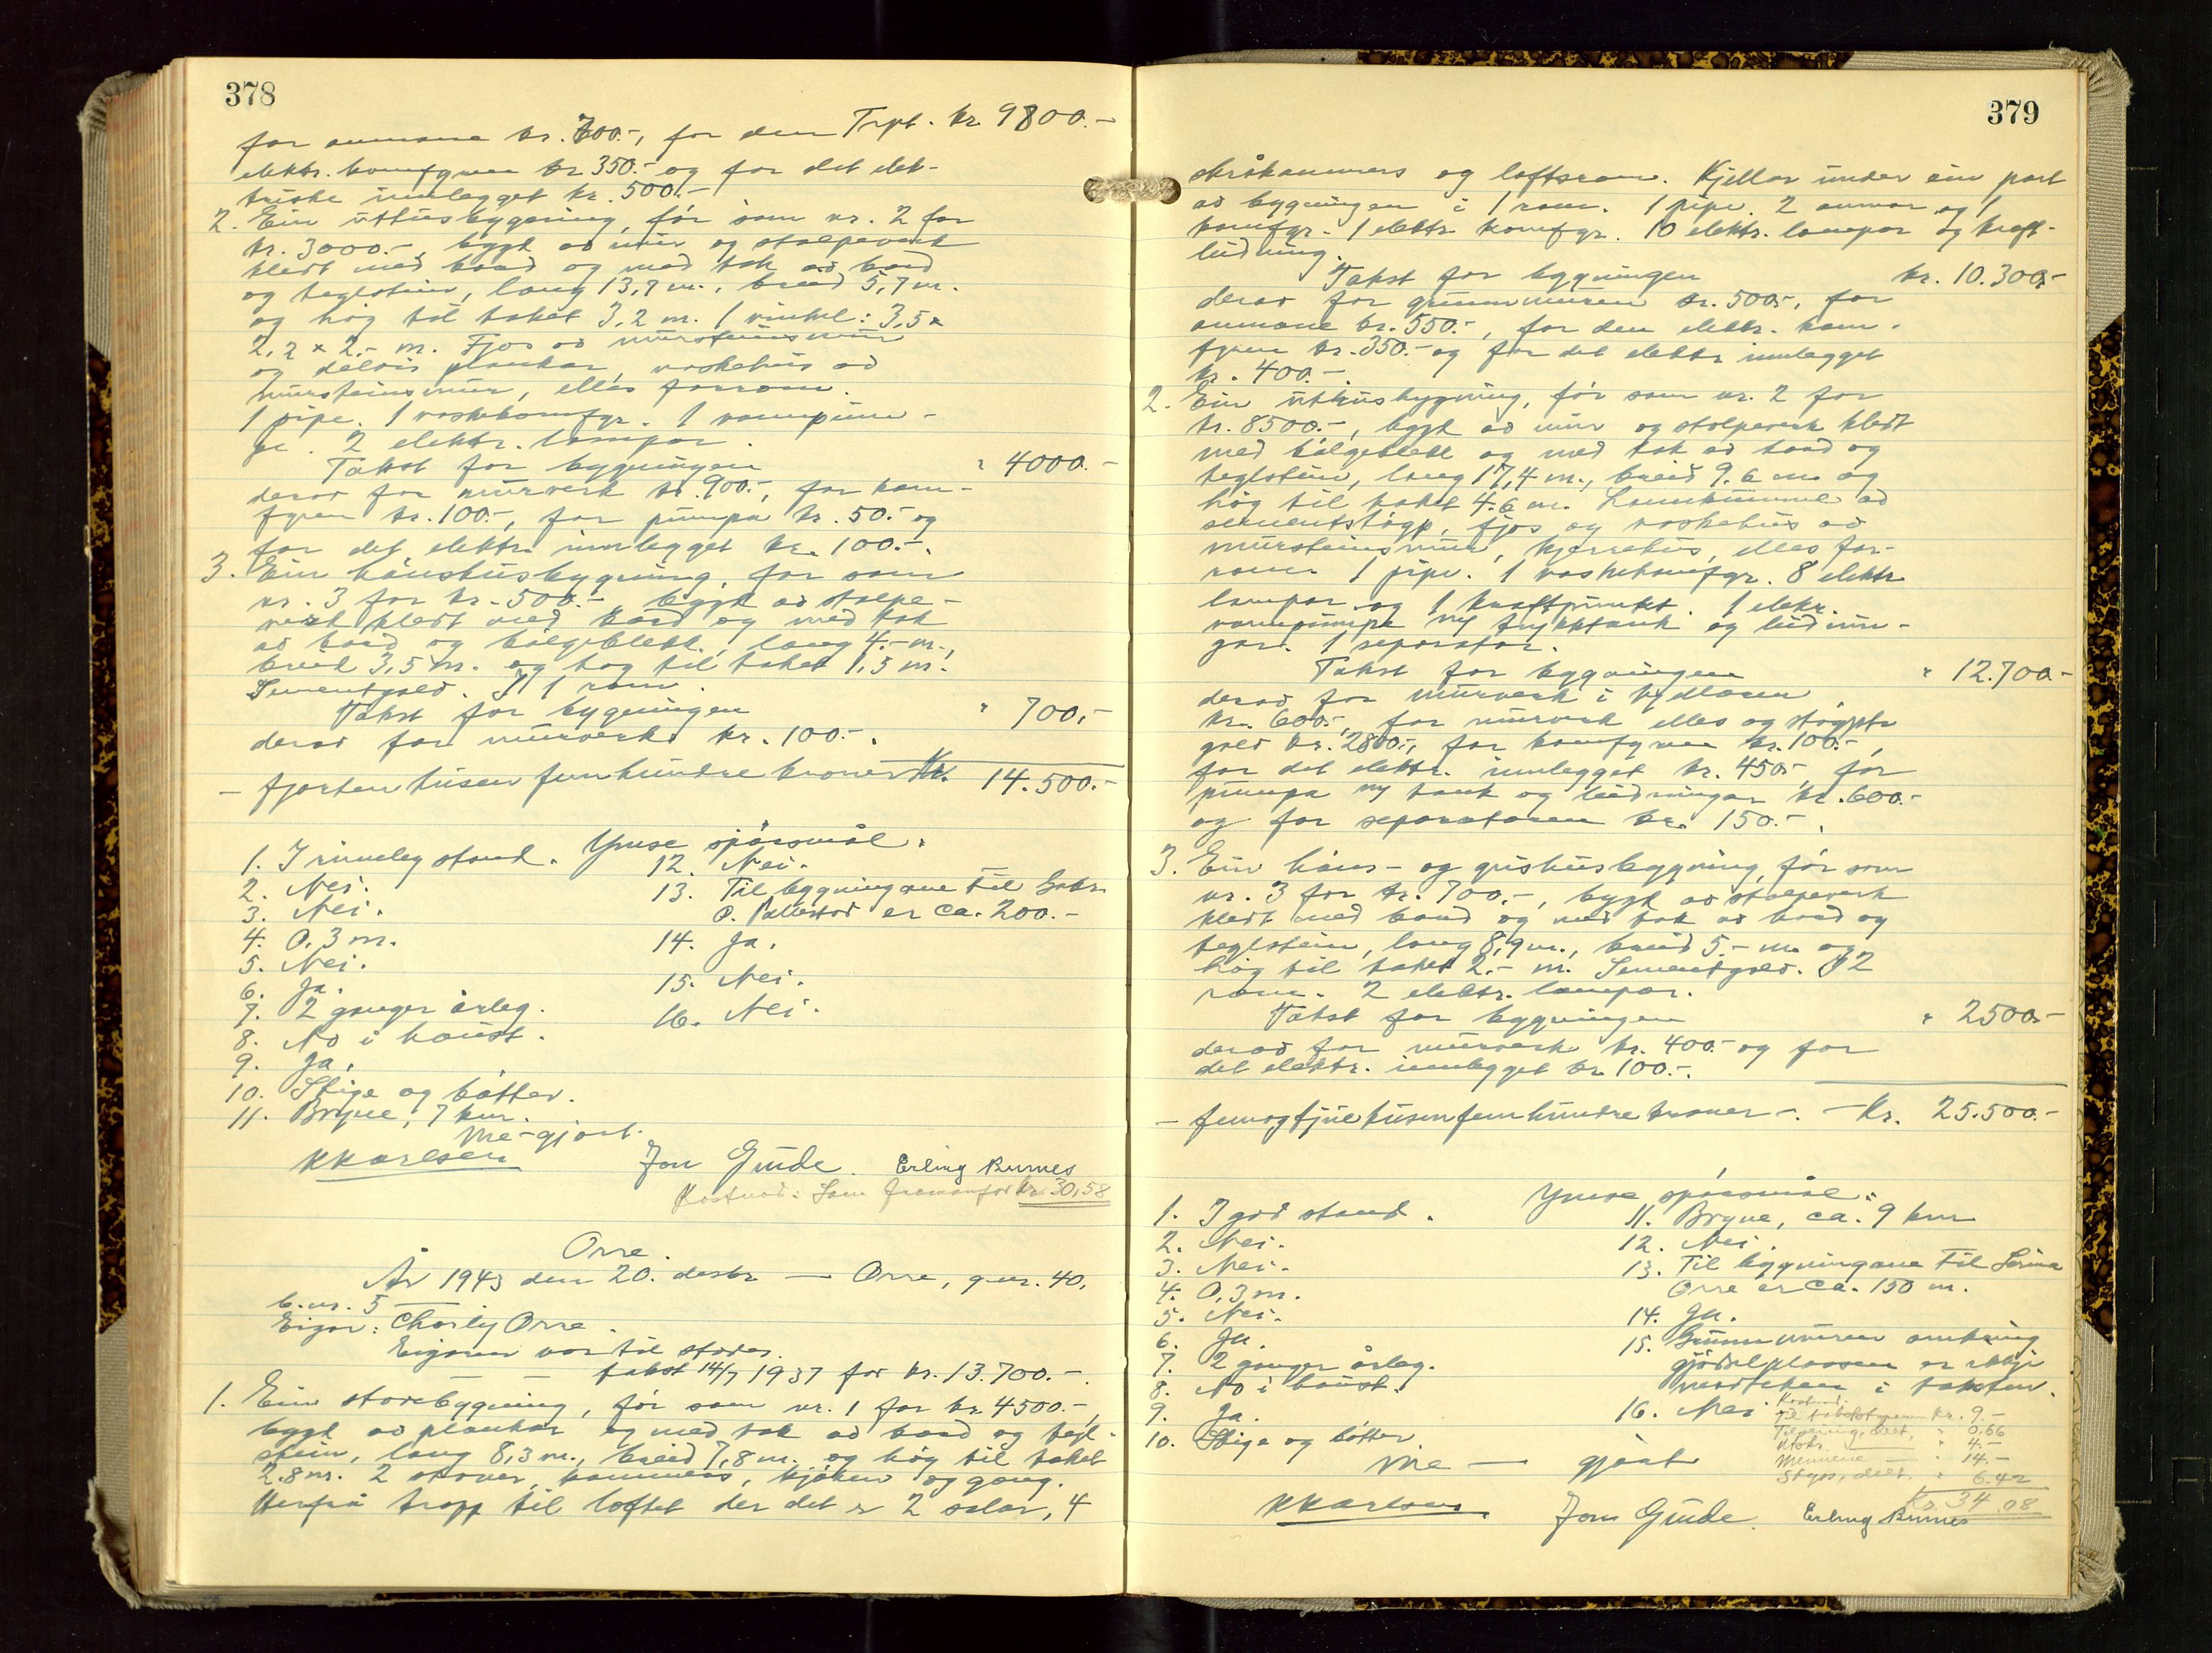 378
Trpt. kr. 9800.-
for omnane kr. 700.-, for den
elektr. komfyren kr 350.- og for det elek-
triske innlegget kr. 500.-
2. Ein uthusbygning, før som nr. 2 for
kr. 3000.-, bygt av mur og stolpeverk
kledt med bord og med tak av bord
og teglstein, lang 13,7 m., breid 5,7 m.
og høg til taket 3,2 m. 1 vinkel: 3,5 x
2,2 x 2,- m. Fjos av mursteinsmur
og delvis plankar, vaskehus av
mursteinsmur, elles forrom.
1 pipe. 1 vaskekomfyr. 1 vannpum-
pe. 2 elektr. lampor.
Takst for bygningen " 4000.-
derav for murverk kr. 900.-, for kom-
fyren kr. 100.-, for pumpa kr. 50.- og
for det elektr. innlegget kr. 100.-.
3. Ein hønsehusbygning, før som
nr. 3 for kr. 500.-, bygt av stolpe-
verk kledt med bord og med tak
av bord og bølgeblekk, lang 4,- m.,
breid 3,5 m. og høg til taket 1,5 m.
Sementgolv. I 1 rom.
Takst for bygningen " 700,-
derav for murverk kr. 100.-.
- fjorten tusen femhundre kroner Kr. 14.500.-
Ymse spørsmål:
1. I rimeleg stand.
2. Nei.
3. Nei.
4. 0,3 m.
5. Nei.
6. Ja.
7. 2 gonger årleg.
8. No i haust.
9. Ja.
10. Stige og bøtter.
11. Bryne, 7 km.
12. Nei.
13. Til bygningane til Gabr.
P. Pollestad er ca. 200.-
14. Ja.
15. Nei.
16. Nei.
Me - gjort.
KKarlsen Jon Gude. Erling Rumes
Kostnad: Som framanfor kr. 30,58
Orre.
År 1943 den 20. desbr - Orre, g.nr. 40,
b.nr. 5
Eigar: Charly Orre.
Eigaren var til stades.
- - takst 14/7 1937 for kr. 13.700.-.
1. Ein stovebygning, før som nr. 1 for kr. 4500.-,
bygt av plankar og med tak av bord og tegl-
stein, lang 8,3 m., breid 7,8 m. og høg til taket
2.8 m. 2 stover, kammers, kjøken og gang.
Herfrå tropp til loftet der det er 2 salar, 4
379
skråkammers og loftsrom. Kjellar under ein part
av bygningen i 1 rom. 1 pipe. 2 omnar og 1
komfyr. 1 elektr komfyr. 10 elektr. lampor og kraft-
leidning.
Takst for bygningen kr. 10.300.-
derav for grunnmuren kr. 500.-, for
omnane kr. 550.-, for den elektr. kom-
fyren kr. 350.- og for det elektr innlegget
kr. 400.-.
2. Ein uthusbygning, før som nr. 2 for
kr. 8500.-, bygt av mur og stolpeverk kledt
med bølgeblekk og med tak av bord og
teglstein, lang 17,4 m., breid 9.6 m. og
høg til taket 4.6 m. Lannkumme av
sementstøyp, fjos og vaskehus av
mursteinsmur, kjerrehus, elles for-
rom. 1 pipe. 1 vaskekomfyr. 8 elektr.
lampor og 1 kraftpunkt. 1 elekr.
vannpumpe m/ trykktank og leidnin-
gar. 1 separator.
Takst for bygningen " 12.700.-
derav for murverk i kjellaren
kr. 600.-, for murverk elles og støypte
golv kr. 2800.-, for komfyren kr. 100.-,
for det elektr. innlegget kr. 450.-, for
pumpa m/ tank og leidningar kr. 600.-
og for separatoren kr. 150.-.
3. Ein høns- og grishusbygning, før som
nr. 3 for kr. 700,-, bygt av stolpeverk
kledt med bord og med tak av bord og
teglstein, lang 8,9 m., breid 5.- m. og
høg til taket 2.- m. Sementgolv. I 2
rom. 2 elektr. lampor.
Takst for bygningen " 2500.-
derav for murverk kr. 400.- og for
det elektr. innlegget kr. 100.-.
- femogtjuetusenfemhundre kroner -. - Kr. 25.500.-
Ymse spørsmål:
1. I god stand.
2. Nei.
3. Nei.
4. 0,3 m.
5. Nei.
6. Ja.
7. 2 gonger årleg.
8. No i haust.
9. Ja.
10. Stige og bøtter.
11. Bryne, ca. 9 km
12. Nei.
13. Til bygningane til Serina
Orre er ca. 150 m.
14. Ja.
15. Grunnmuren omkring
gjødselplassen er ikkje
medteken i taksten.
16. Nei.
Kostnad:
Til takstskyssen kr. 9.-
delt, " 0.66
" 4.-
Mennene - " 14.-
Skyss, delt, " 6.42
Kr. 34.08
Me - gjort
KKarlsen Jon Gude. Erling Rumes